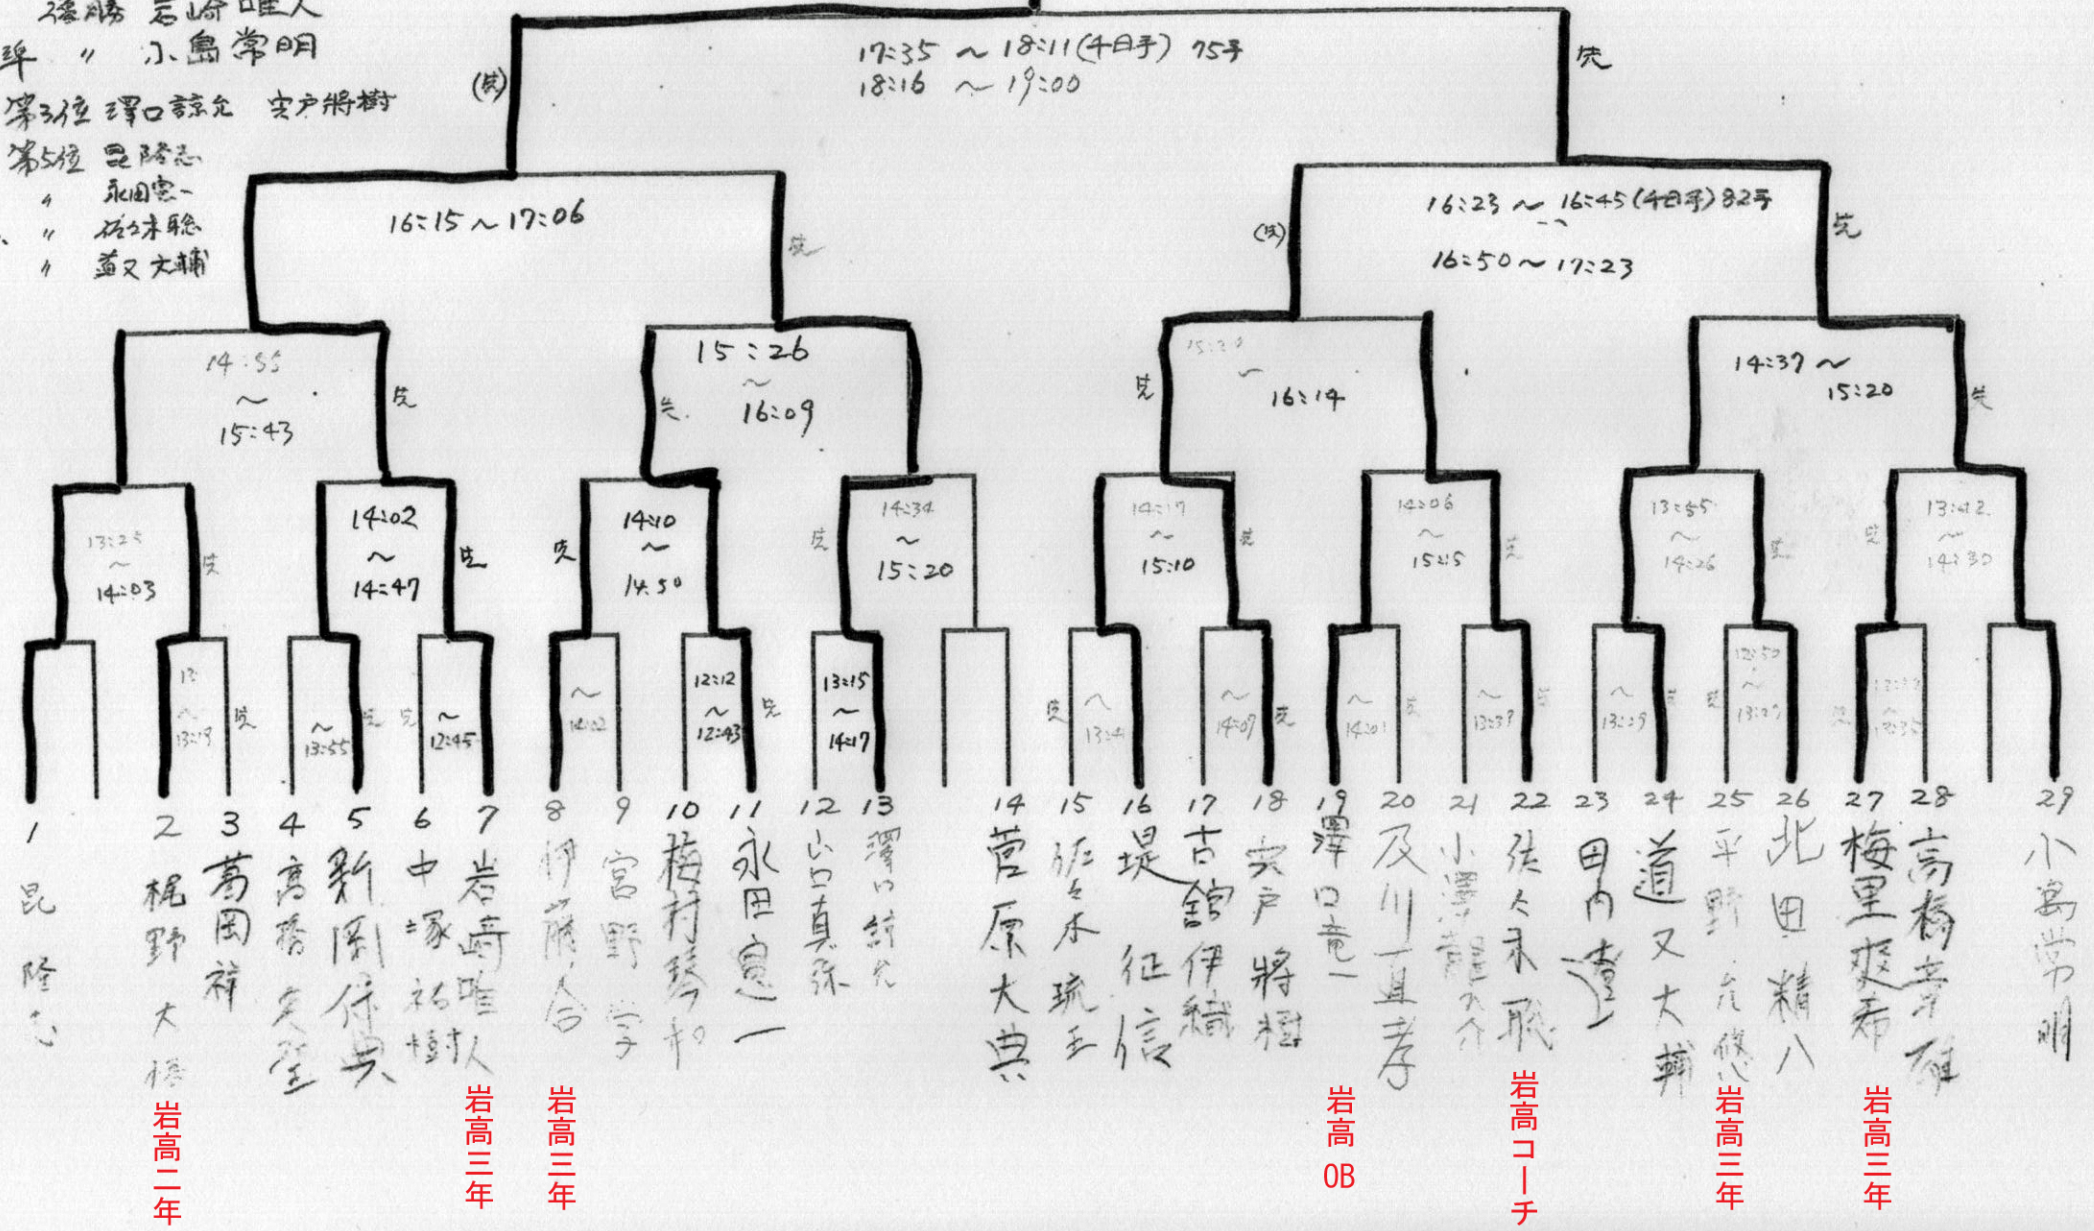 優勝 岩崎唯人
準 〃 小島常明
第3位 澤口諒允 宍戸將樹
第5位 昆隆志
〃 永田憲一
〃 佐々木聡
〃 道又大輔
17:35 ～ 18:11(千日手) 75手
18:16 ～ 19:00
(先)
先
16:15～17:06
先
(先)
16:23～16:45(千日手)82手
16:50～17:23
先
14:55
～
15:43
先
先
15:26
～
16:09
先
15:30
～
16:14
14:37～
15:20
先
13:25
～
14:03
先
14:02
～
14:47
先
先
14:10
～
14:50
先
14:34
～
15:20
14:17
～
15:10
先
14:06
～
15:15
先
13:55
～
14:26
先
先
13:42
～
14:30
13:
～
13:19
先
～
13:55
先
先
～
12:45
～
14:02
12:12
～
12:43
先
13:15
～
14:17
先
～
13:41
～
14:07
先
～
14:01
先
～
13:39
先
～
13:29
先
先
12:50
～
13:27
先
1 昆 隆志
2 梶野 大
3 葛岡 祥
4 高橋
5 新岡保典
6 中塚祐樹
7 岩崎唯人
8 伊藤
9 宮野 学
10 梅村琴和
11 永田憲一
12 山口真弥
13 澤口諒允
14 菅原大典
15 佐々木琉王
16 堤 征信
17 古舘伊織
18 宍戸將樹
19 澤口竜一
20 及川直孝
21 小澤龍之介
22 佐々木聡
23 田内
24 道又大輔
25 平野允悠
26 北田精八
27 梅里爽希
28 高橋幸雄
29 小島常明
岩高二年
岩高三年
岩高三年
岩高OB
岩高コーチ
岩高三年
岩高三年